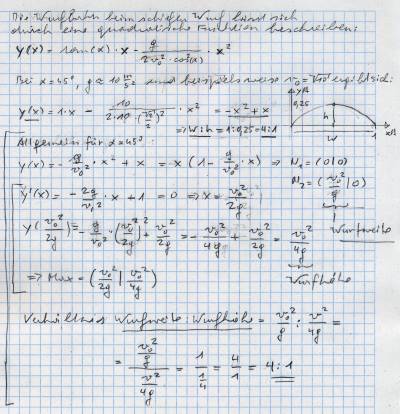 Die Wurfbahn beim schiefen Wurf lässt sich
durch eine quadratische Funktion beschreiben:
y(x) = tan(α) · x − g/(2v₀² · cos²(α)) · x²
Bei α = 45°, g ≈ 10 m/s² und beispielsweise v₀ = √10 ergibt sich:
y(x) = 1·x − 10/(2·10·(√2/2)²) · x² = −x² + x
⇒ W:h = 1:0,25 = 4:1
y/m
0,25
h
W
1
x/m
Allgemein für α = 45°:
y(x) = −g/v₀² · x² + x = −x (1 − g/v₀² · x) ⇒ N₁ = (0|0)
N₂ = (v₀²/g | 0)
Wurfweite
y'(x) = −2g/v₀² · x + 1 = 0 ⇒ x = v₀²/2g
y(v₀²/2g) = −g/v₀² · (v₀²/2g)² + v₀²/2g = −v₀²/4g + v₀²/2g = v₀²/4g
Wurfhöhe
⇒ Max = (v₀²/2g | v₀²/4g)
Verhältnis Wurfweite : Wurfhöhe = v₀²/g : v²/4g =
= (v₀²/g)/(v²/4g) = 1/(1/4) = 4/1 = 4 : 1